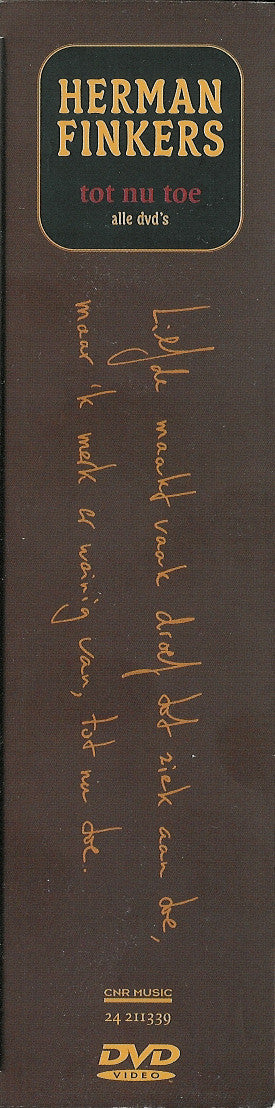 HERMAN
FINKERS
tot nu toe
alle dvd's
Liefde maakt vaak droef tot ziek aan toe,
maar 'k merk er weinig van, tot nu toe.
CNR MUSIC
24 211339
DVD
VIDEO